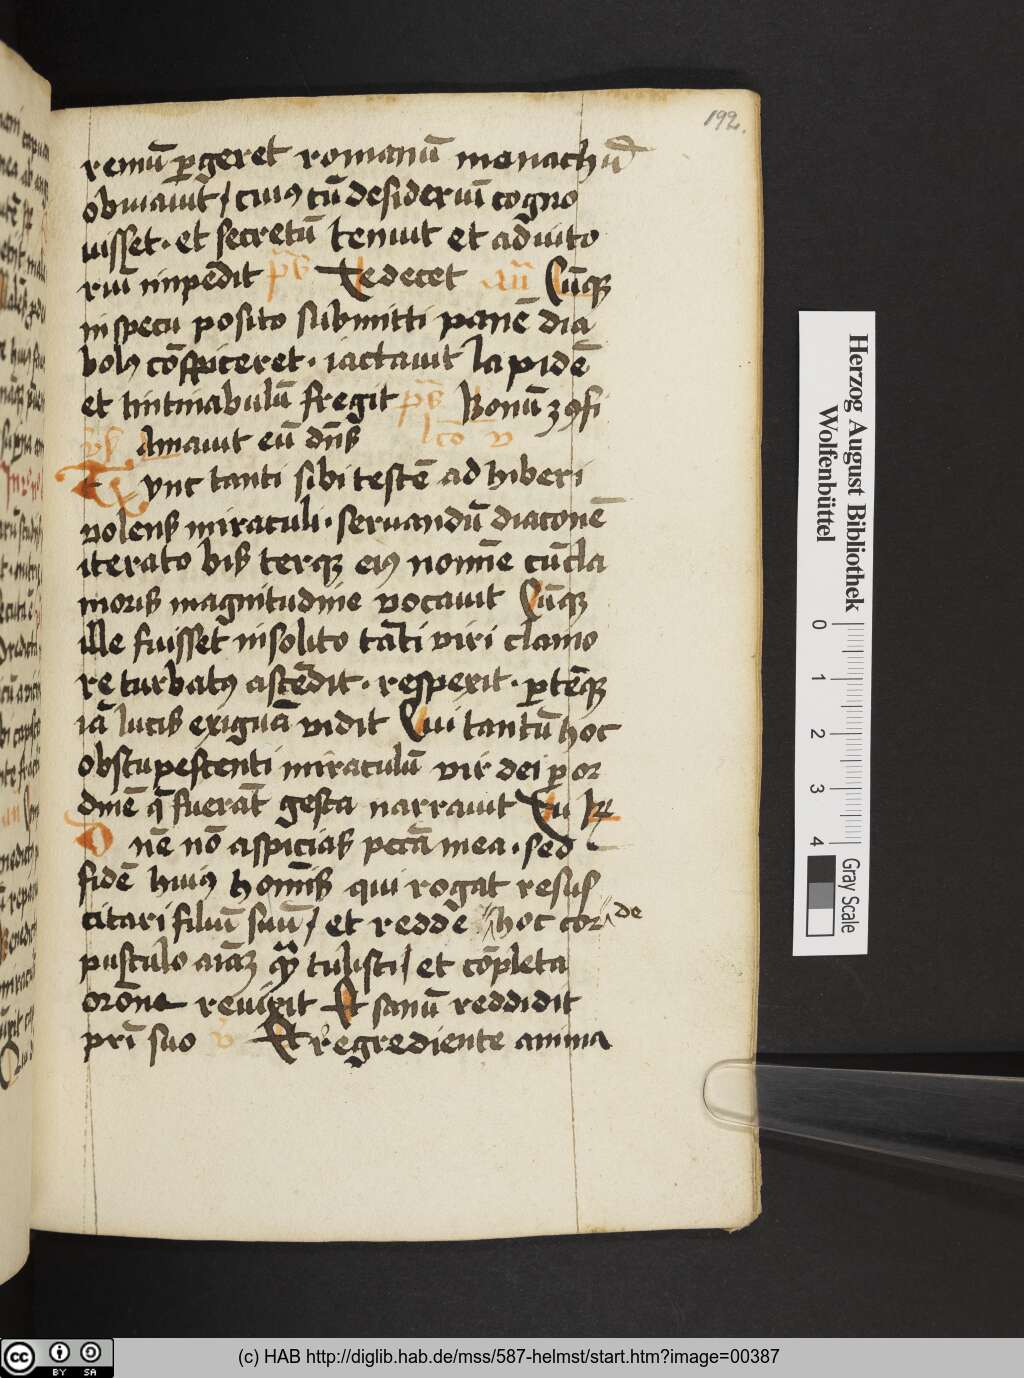 192.
remū ꝑgeret romanū monachū
obuiauit / cuiꝰ cū desideriū cogno
uisset · et secretū tenuit et adiuto
riū impēdit p̄s Te decet an̄ Cūqꝫ
in specu posito submitti panē dia
bolꝰ cōspiceret · iactauit lapidē
et tintinabulū fregit p̄s Bonū ꝯfi
v̄s Amauit eū dn̄s lc̄o v
Tunc tanti sibi testē adhiberi
volens miraculi · seruandū diaconē
iterato bis terqꝫ eiꝰ nomīe cū cla
moris magnitudine vocauit Cūqꝫ
ille fuisset insolito tāti viri clamo
re turbatꝰ ascēdit · respexit · ꝑtēqꝫ
iā lucis exiguā vidit Cui tantū hoc
obstupescenti miraculū vir dei ꝑ or
dinē q̄ fuerāt gesta narrauit Tu
Dn̄e nō aspicias pctā mea · sed
fidē huiꝰ homīs qui rogat resus
citari filiū suū / et redde hoc cor de
pusculo aīaꝫ quā tulisti / et cōpleta
orōne reuixit Et sanū reddidit
pr̄i suo v̄ Et regrediente anima
Herzog August Bibliothek
Wolfenbüttel
0 1 2 3 4
Gray Scale
cc BY SA
(c) HAB http://diglib.hab.de/mss/587-helmst/start.htm?image=00387